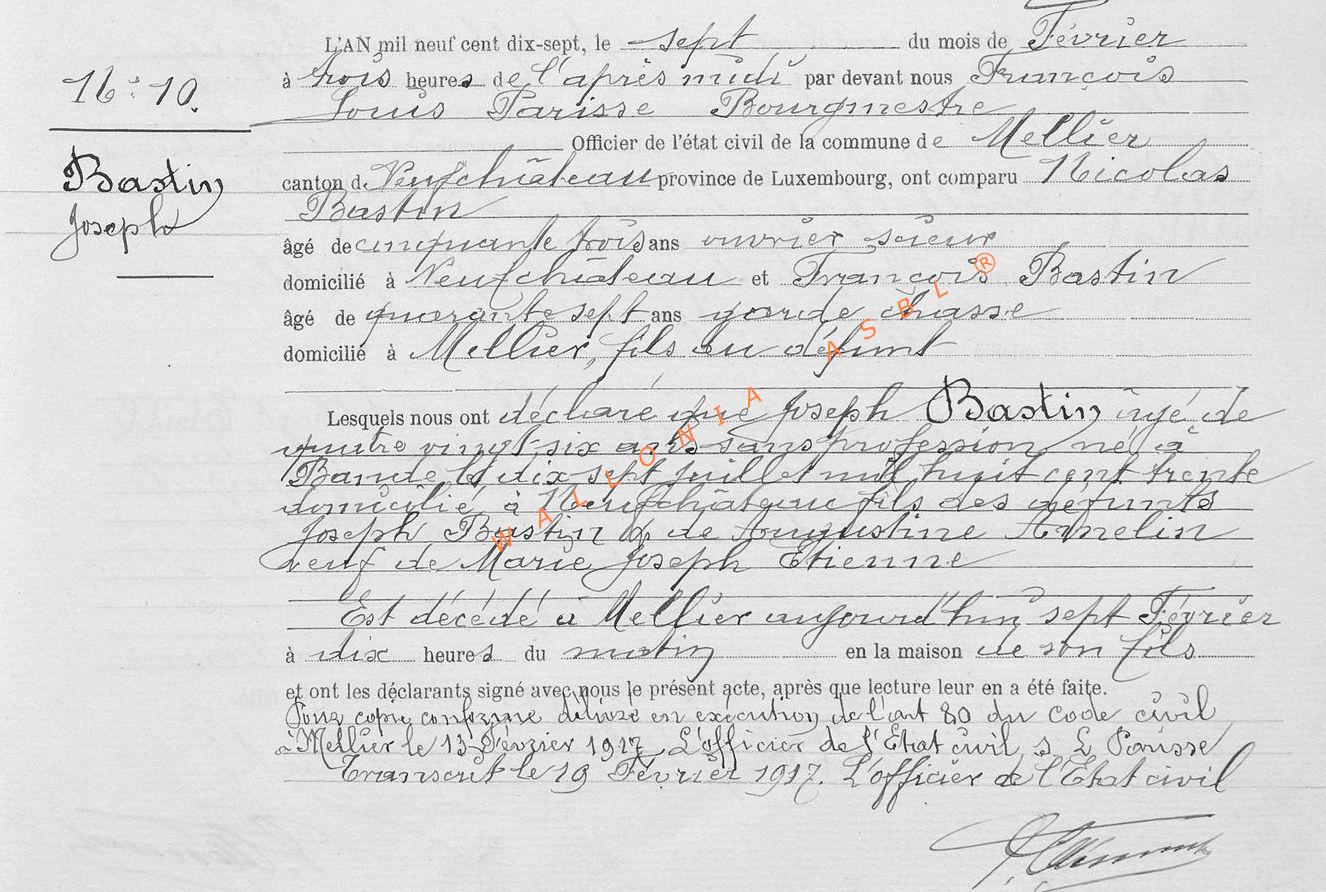 L'AN mil neuf cent dix-sept, le sept du mois de Février
N° 10.
à trois heures de l'après midi par devant nous François
Louis Parisse Bourgmestre
Officier de l'état civil de la commune de Mellier
Bastin
Joseph
canton d. Neufchâteau province de Luxembourg, ont comparu Nicolas
Bastin
âgé de cinquante trois ans ouvrier scieur
domicilié à Neufchâteau et François Bastin
âgé de quarante sept ans garde chasse
domicilié à Mellier, fils du défunt
Lesquels nous ont déclaré que Joseph Bastin âgé de
quatre vingt-six ans sans profession né à
Bande le dix sept juillet mil huit cent trente
domicilié à Neufchâteau fils des défunts
Joseph Bastin & de Augustine Amelin
veuf de Marie Joseph Etienne
Est décédé à Mellier aujourd'hui sept Février
à dix heures du matin en la maison de son fils
et ont les déclarants signé avec nous le présent acte, après que lecture leur en a été faite.
Pour copie conforme délivré en exécution de l'art 80 du code civil
à Mellier le 13 Février 1917 L'officier de l'Etat civil, s L Parisse
Transcrit le 19 Février 1917. L'officier de l'Etat civil
WALLONIA ASBL ®